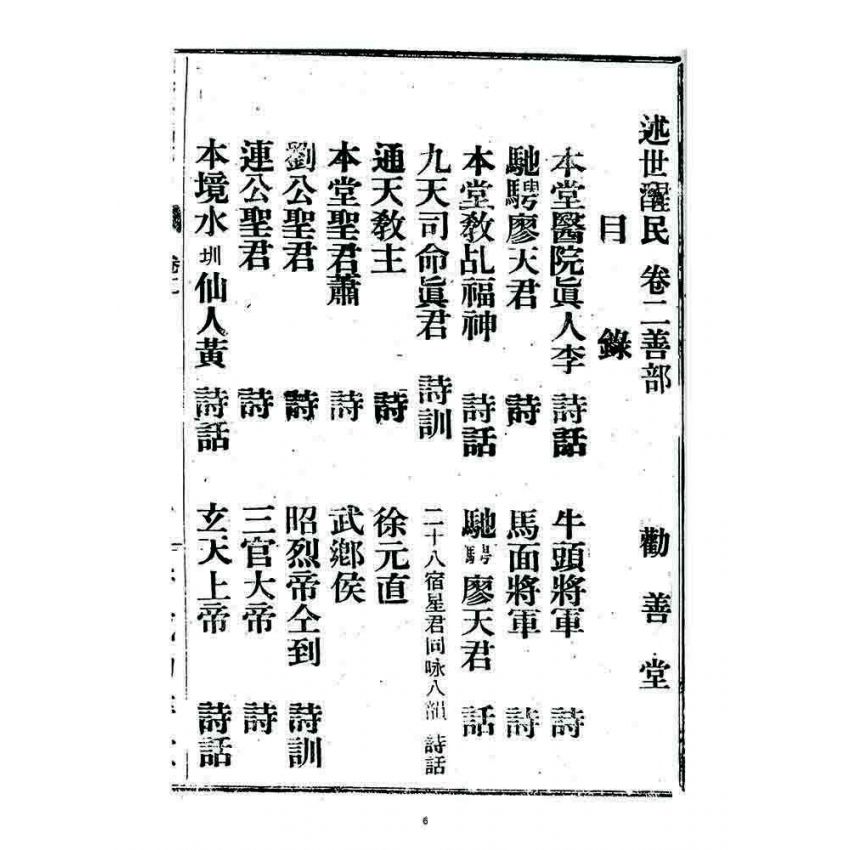 述世醒民 卷二善部 勸善堂
目錄
本堂醫院眞人李 詩話 牛頭將軍 詩
馳騁廖天君 詩 馬面將軍 詩
本堂教乩福神 詩話 馳騁廖天君 話
九天司命眞君 詩訓 二十八宿星君同咏八韻 詩話
通天教主 詩 徐元直
本堂聖君蕭 詩 武鄉侯
劉公聖君 詩 昭烈帝仝到 詩訓
連公聖君 詩 三官大帝 詩
本境水圳仙人黃 詩話 玄天上帝 詩話
卷二
6